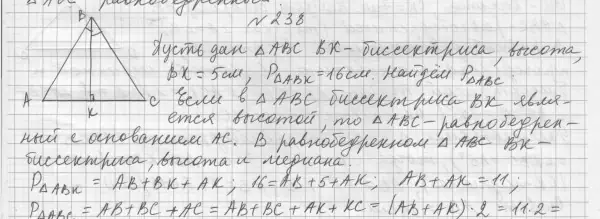 △ABC равнобедренный.
№238
B
Пусть дан △ABC BK - биссектриса, высота,
BK = 5см, P△ABK = 16см. Найдём P△ABC.
A K C
Если в △ABC биссектриса BK явля-
ется высотой, то △ABC - равнобедрен-
ный с основанием AC. В равнобедренном △ABC BK-
биссектриса, высота и медиана.
P△ABK = AB+BK+AK; 16=AB+5+AK; AB+AK=11;
P△ABC = AB+BC+AC=AB+BC+AK+KC=(AB+AK)·2=11·2=